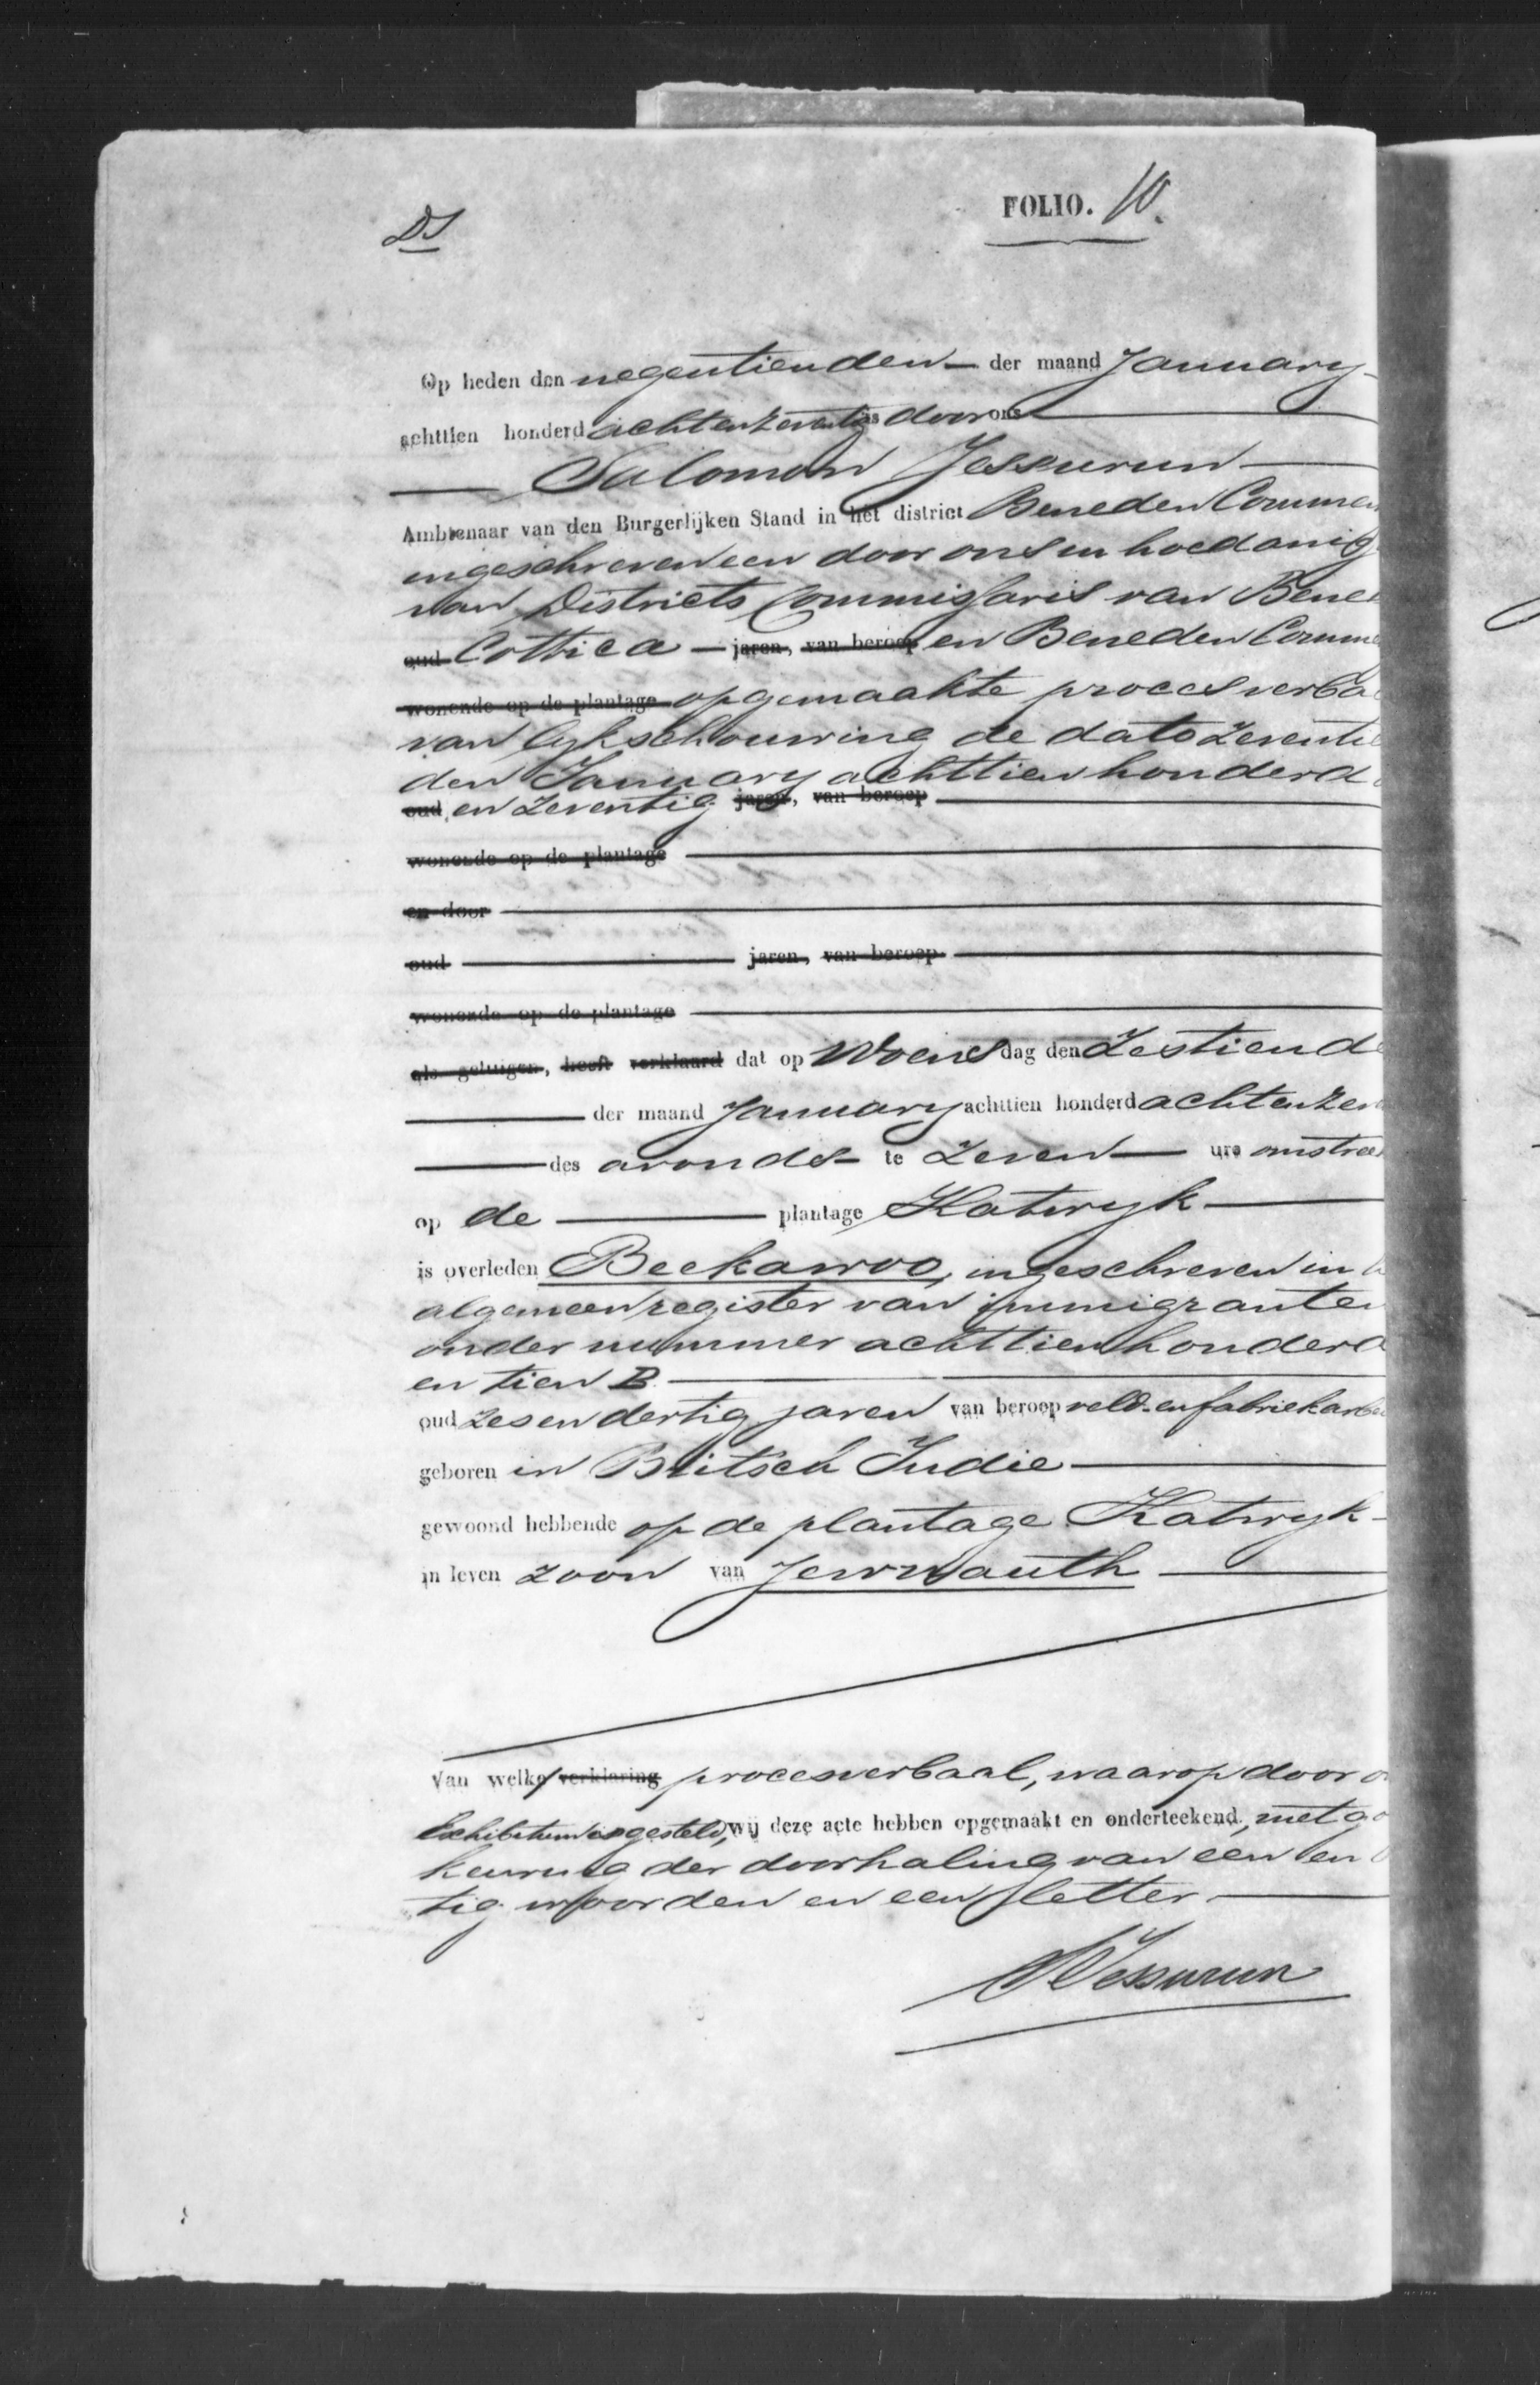 DS
FOLIO. 10.
Op heden den negentienden der maand January
achttien honderd achtenzeventig is door ons
Salomon Jessurun
Ambtenaar van den Burgerlijken Stand in het district Beneden Comme
ingeschreven een door ons in hoedanig
van Districts Commissaris van Bene
oud Cottica jaren, van beroep en Beneden Comme
wonende op de plantage opgemaakte proces verba
van lykschouwing de dato zeventie
den January achttien honderd
oud en zeventig jaren, van beroep
wonende op de plantage
en door
oud jaren, van beroep
wonende op de plantage
als getuigen, heeft verklaard dat op Woensdag den Zestiende
der maand January achttien honderd achtenzev
des avonds te Zeven ure omstree
op de plantage Katwyk
is overleden Beekawoo, ingeschreven in h
algemeen register van immigranten
onder nummer achttienhonderd
en tien B
oud zesendertig jaren van beroep veld- en fabriekarbe
geboren in Britsch Indie
gewoond hebbende op de plantage Katwyk
in leven zoon van Jewnauth
Van welke verklaring procesverbaal, waarop door o
Exhibitum is gesteld, wij deze acte hebben opgemaakt en onderteekend, met go
keuring der doorhaling van een en
tig woorden en een letter
SJessurun